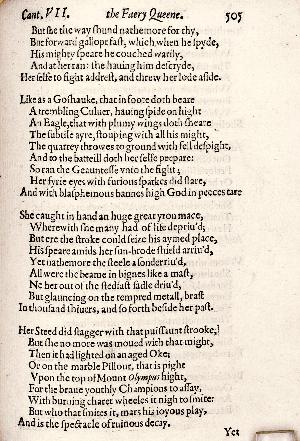 Cant. VII. the Faery Queene. 505
But she the way shound nathemore for thy,
But forward gallopt fast, which when he spyde,
His mighty speare he couched warily,
And at her ran: she hauing him descryde,
Her selfe to fight addrest, and threw her lode aside.
Like as a Goshauke, that in foote doth beare
A trembling Culuer, hauing spide on hight
An Eagle, that with plumy wings doth sheare
The subtile ayre, stouping with all his might,
The quarrey throwes to ground with fell despight,
And to the batteill doth her selfe prepare:
So ran the Geauntesse vnto the fight;
Her fyrie eyes with furious sparkes did stare,
And with blasphemous bannes high God in peeces tare
She caught in hand an huge great yron mace,
Wherewith she many had of life depriu'd;
But ere the stroke could seize his aymed place,
His speare amids her sun-brode shield arriu'd,
Yet nathemore the steele asonder riu'd,
All were the beame in bignes like a mast,
Ne her out of the stedfast sadle driu'd,
But glauncing on the tempred metall, brast
In thousand shiuers, and so forth beside her past.
Her Steed did stagger with that puissaunt strooke;
But she no more was moued with that might,
Then it had lighted on an aged Oke;
Or on the marble Pillour, that is pight
Vpon the top of Mount Olympus hight,
For the braue youthly Champions to assay,
With burning charet wheeles it nigh to smite:
But who that smites it, mars his ioyous play,
And is the spectacle of ruinous decay.
Yet